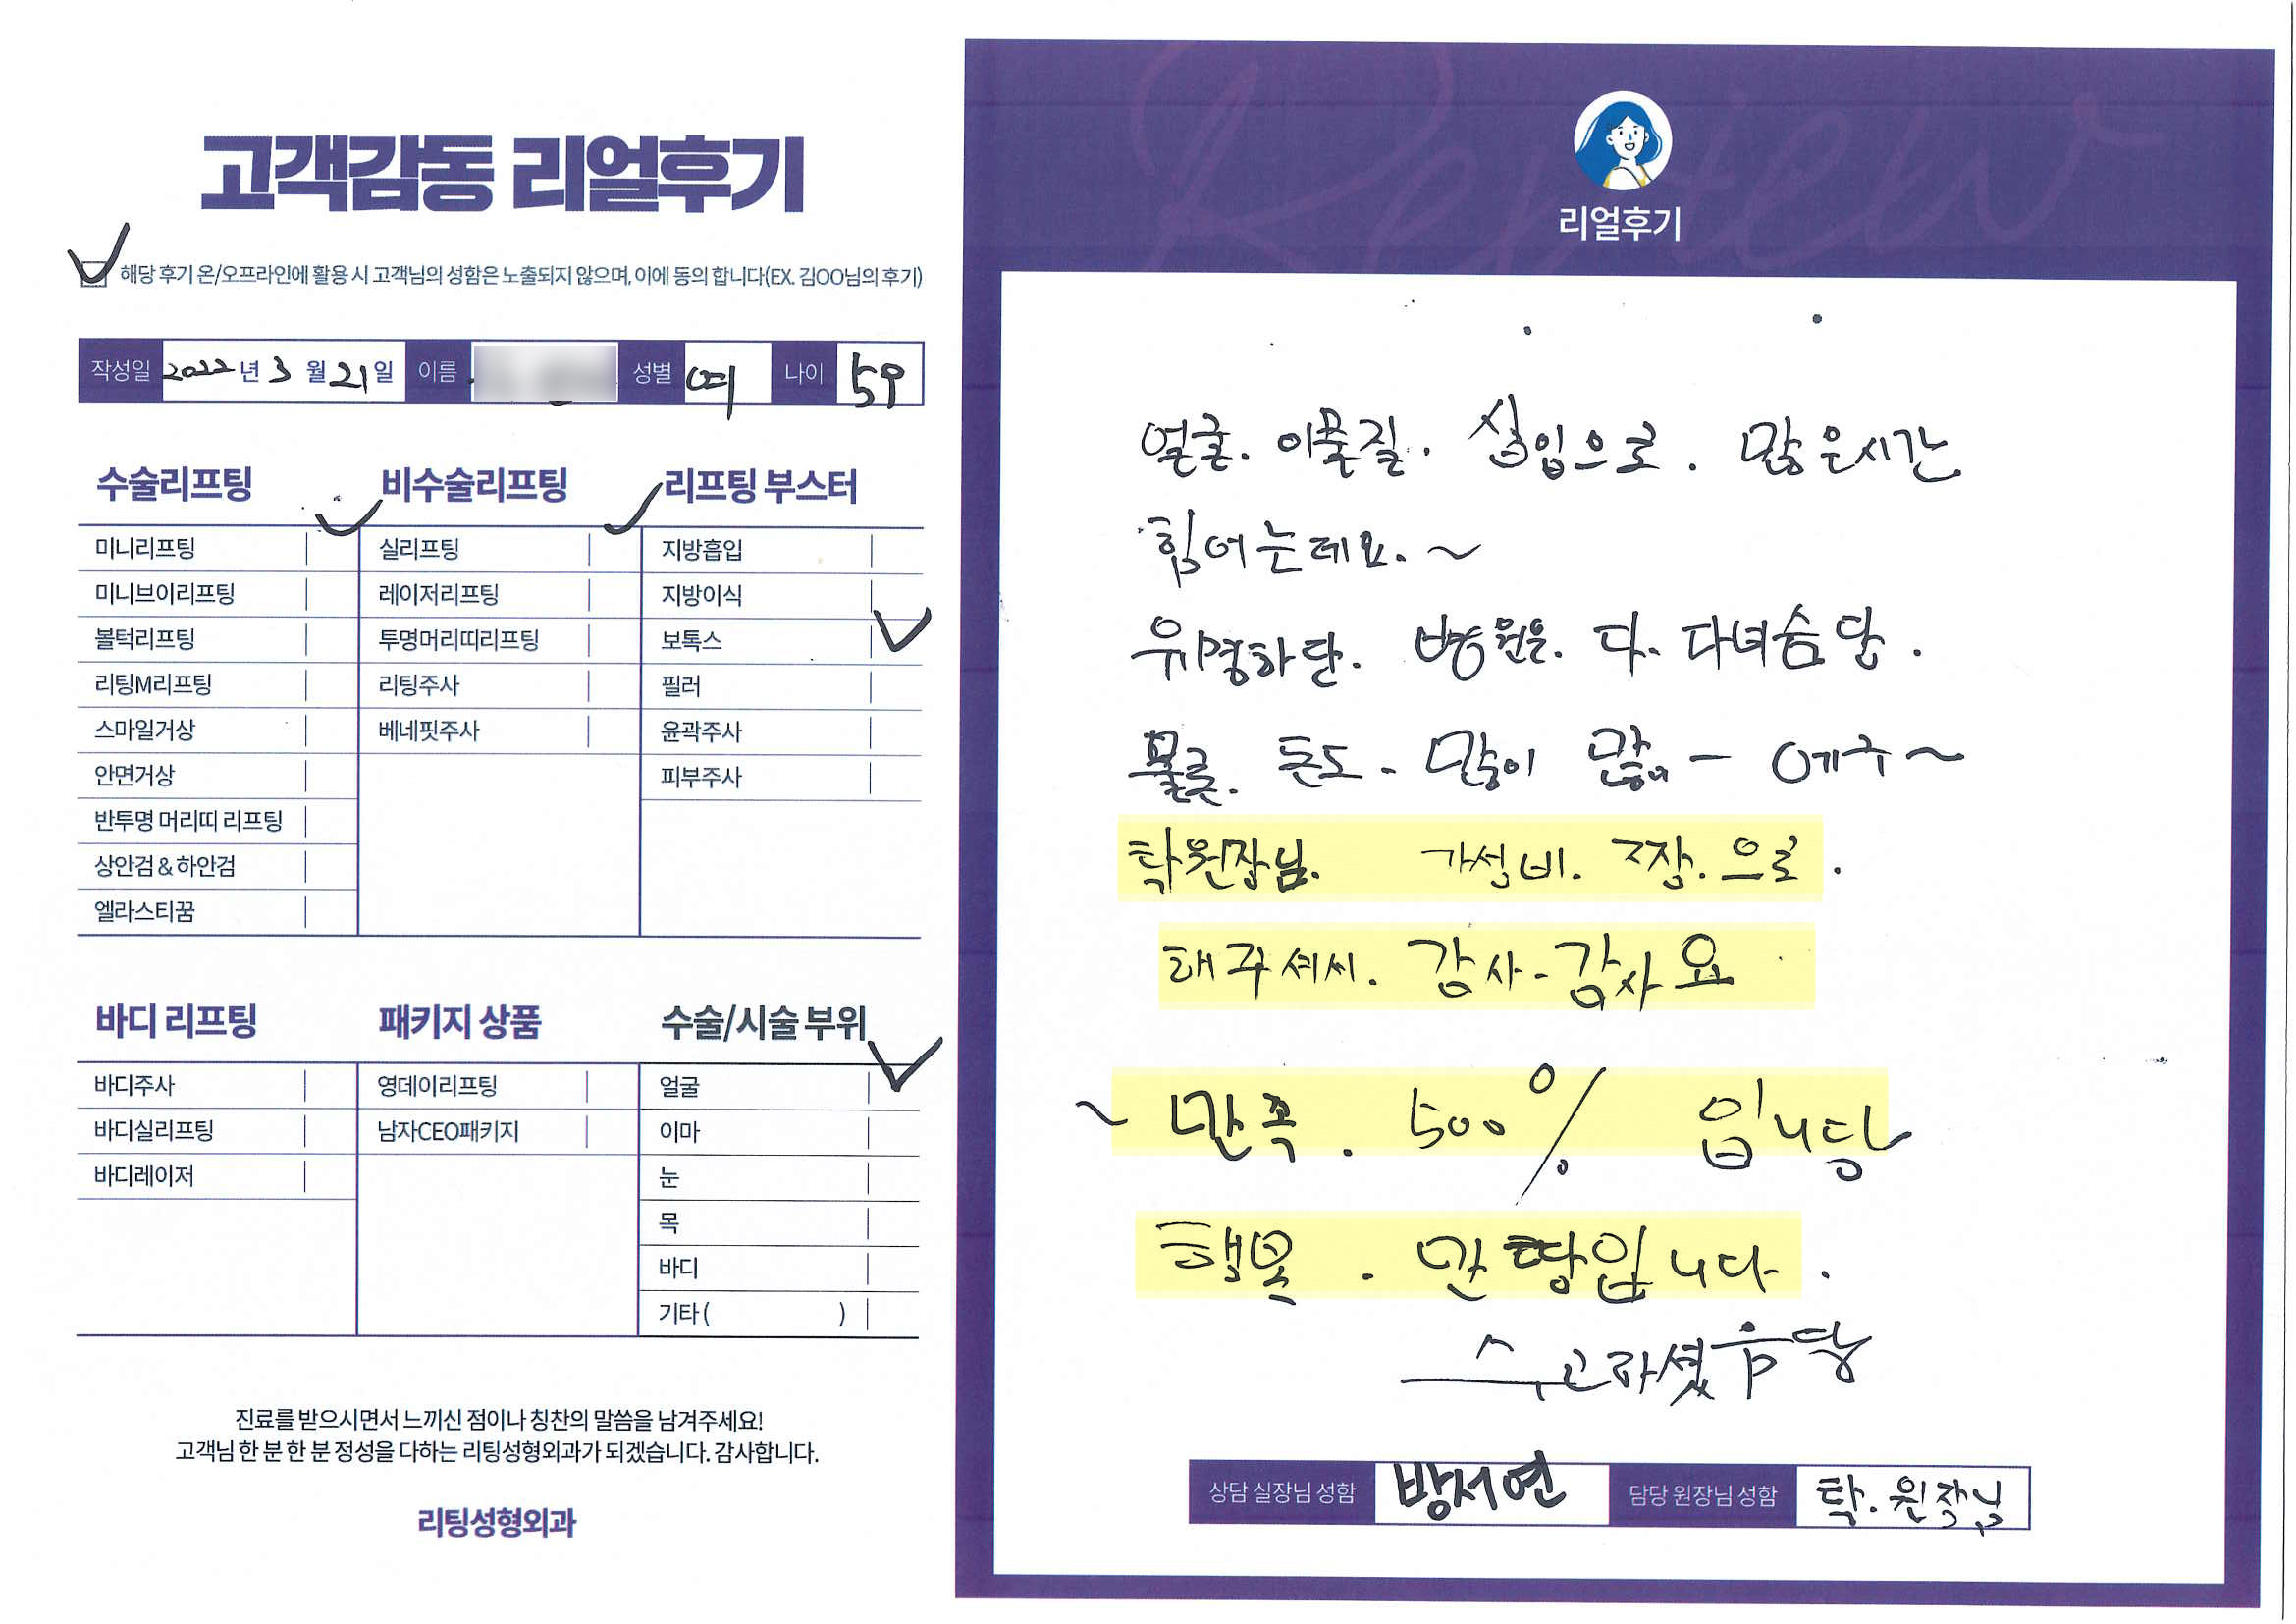 고객감동 리얼후기
해당 후기 온/오프라인에 활용 시 고객님의 성함은 노출되지 않으며, 이에 동의 합니다(EX. 김OO님의 후기)
작성일 2022년 3월 21일 이름 성별 여 나이 59
수술리프팅
미니리프팅
미니브이리프팅
볼턱리프팅
리팅M리프팅
스마일거상
안면거상
반투명 머리띠 리프팅
상안검 & 하안검
엘라스티꿈
비수술리프팅
실리프팅
레이저리프팅
투명머리띠리프팅
리팅주사
베네핏주사
리프팅 부스터
지방흡입
지방이식
보톡스
필러
윤곽주사
피부주사
바디 리프팅
바디주사
바디실리프팅
바디레이저
패키지 상품
영데이리프팅
남자CEO패키지
수술/시술 부위
얼굴
이마
눈
목
바디
기타 ( )
진료를 받으시면서 느끼신 점이나 칭찬의 말씀을 남겨주세요!
고객님 한 분 한 분 정성을 다하는 리팅성형외과가 되겠습니다. 감사합니다.
리팅성형외과
Review
리얼후기
얼굴. 이물질. 삽입으로. 많은시간
힘어는데요.~
유명하단. 병원은. 다. 다녀슴담.
물론. 돈도. 많이 - 에구~
탁원장님. 가성비. 짱.으로.
해주셔씨. 감사-감사요
~ 만족. 500% 입니당
행복. 만땅입니다.
수고하셨슴당
상담 실장님 성함 방서연 담당 원장님 성함 탁.원장님